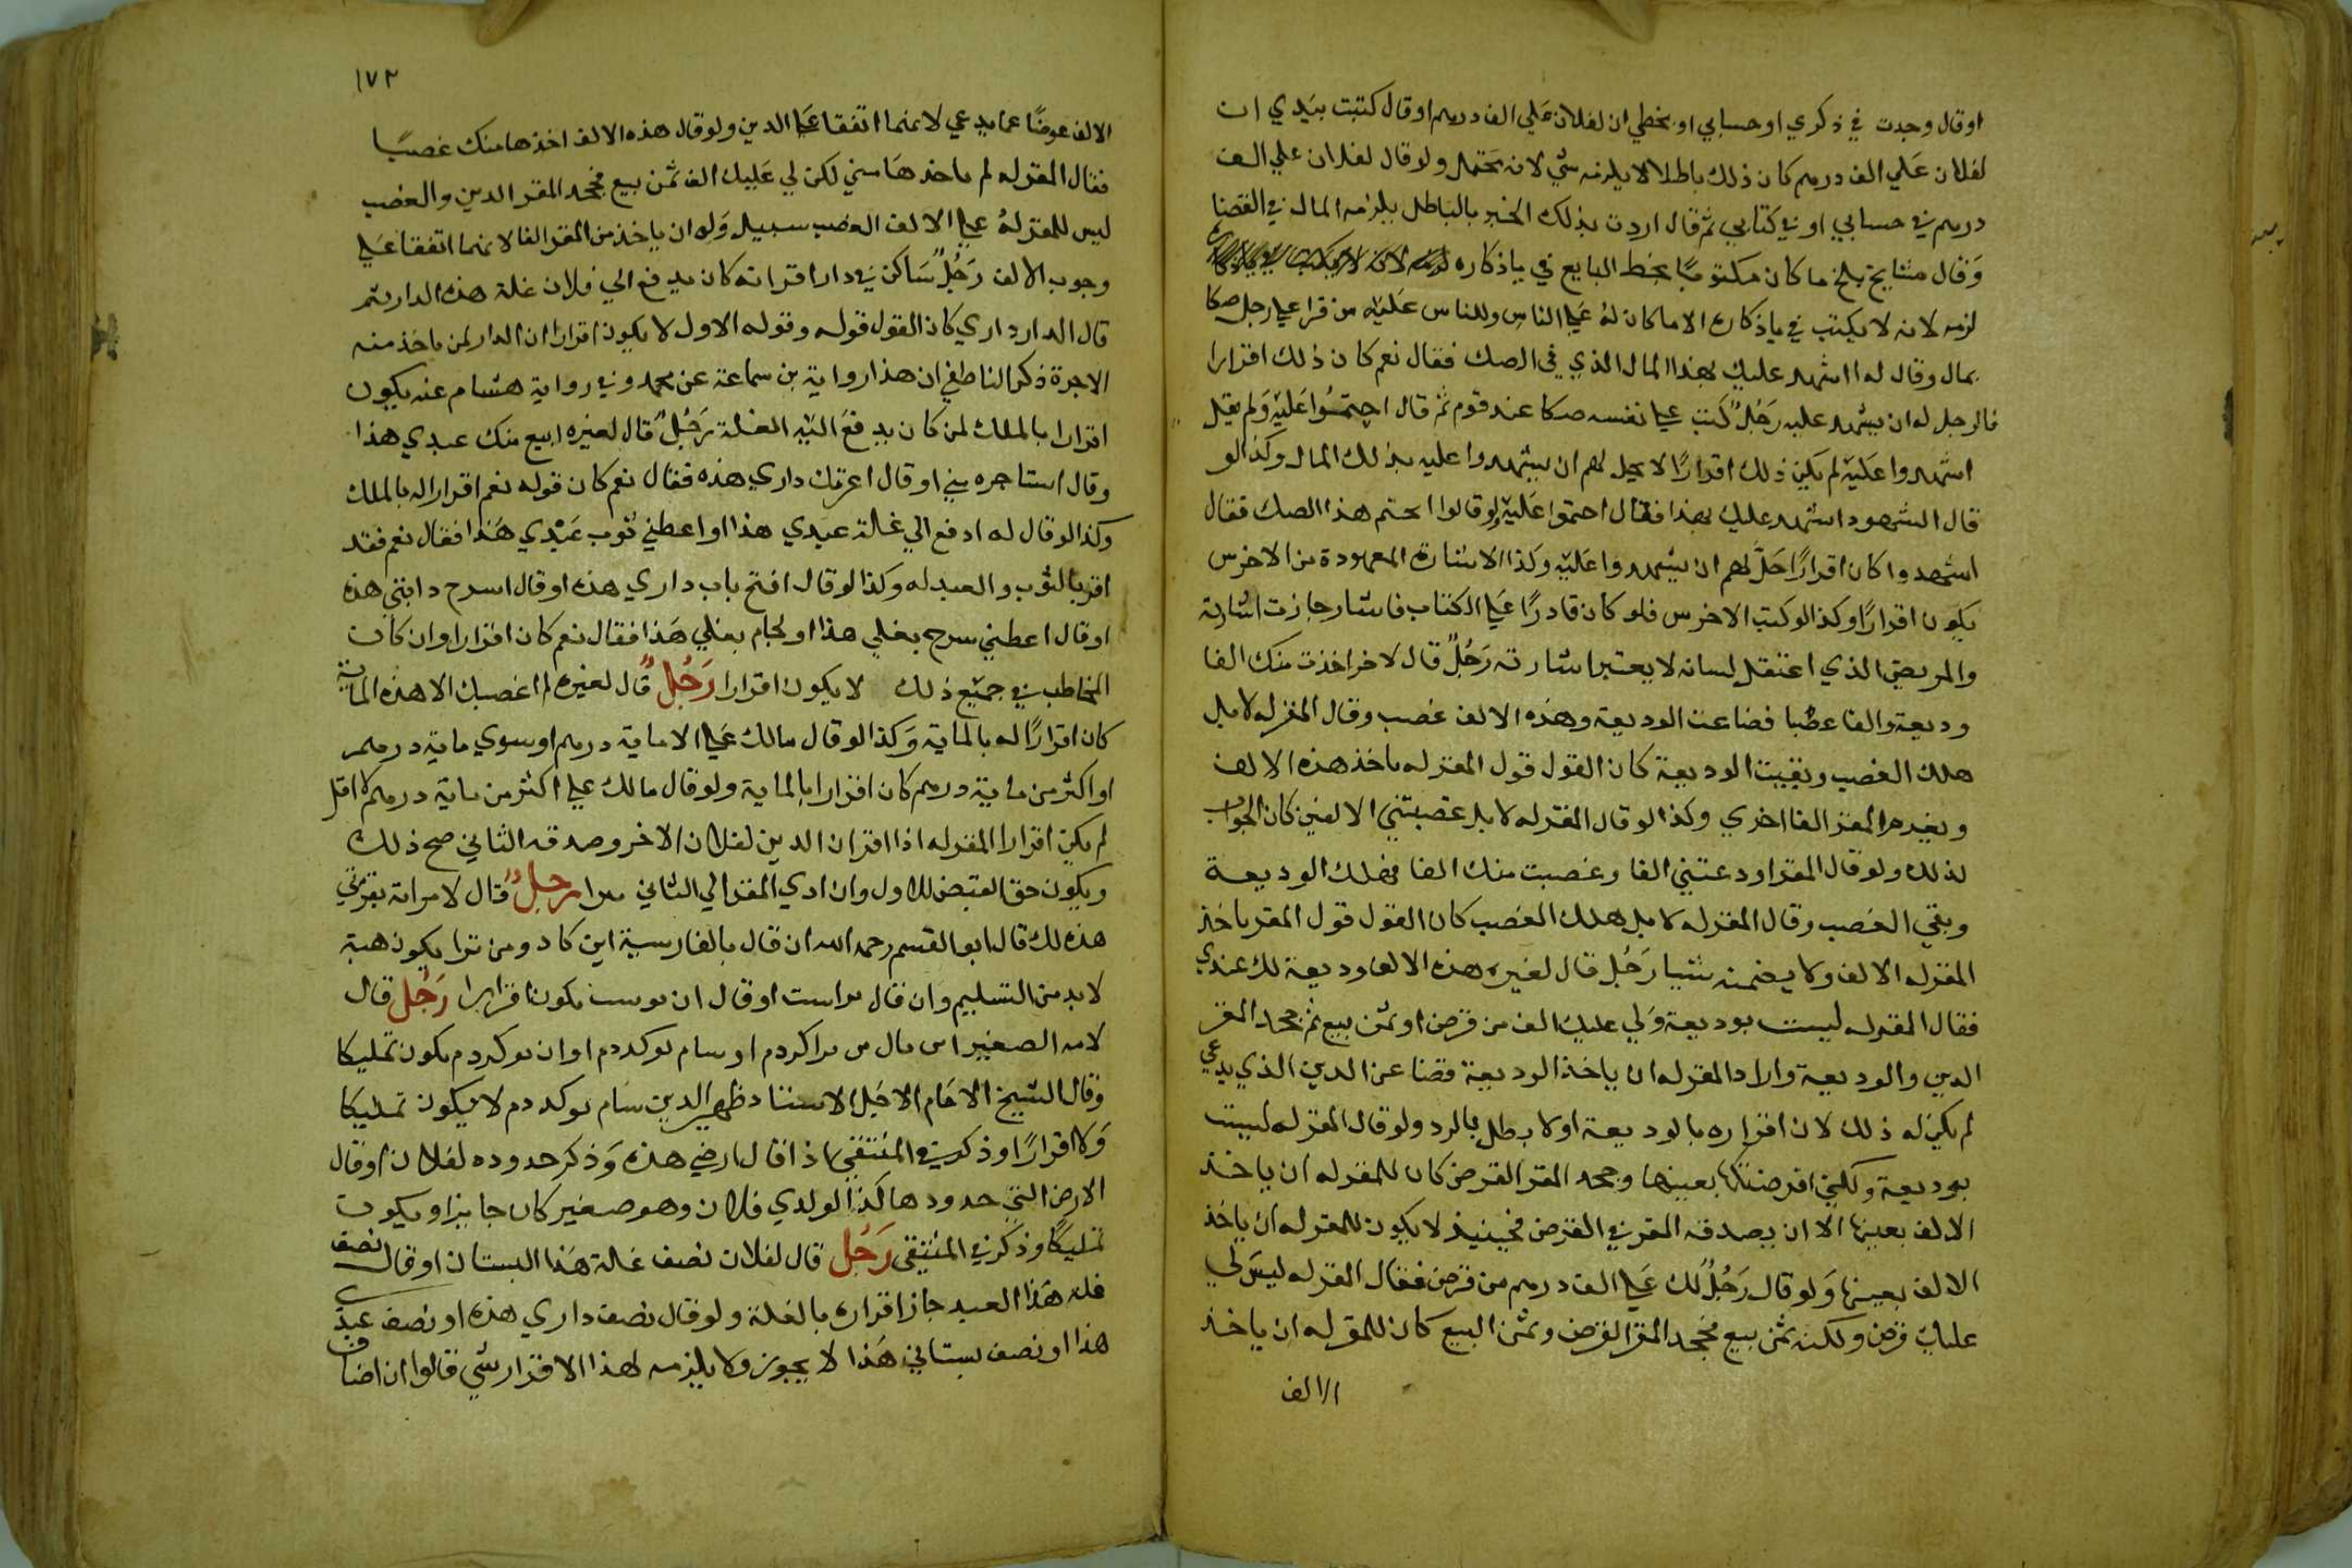 اوقال وجدت في ذكري او حسابي او بخطي ان لفلان علي الف درهم اوقال كتبت بيدي ان
لفلان علي الف درهم كان ذلك باطلا لا يلزمه شي لانه محتمل ولو قال لفلان علي الف
درهم في حسابي او في كتابي ثم قال اردت بذلك الخبر بالباطل يلزمه المال في القضا
وقال مشايخ بلخ ما كان مكتوبا بخط البايع في ياذكاره
لزمه لانه لا يكتب في ياذكاره الا ما كان له علي الناس وللناس عليه من قرا علي رجل صكا
بمال وقال له ااشهد عليك بهذا المال الذي في الصك فقال نعم كان ذلك اقرارا
فالرجل له ان يشهد عليه رجل كتب علي نفسه صكا عند قوم ثم قال اختموا عليه ولم يقل
اشهدوا عليه لم يكن ذلك اقرارا لا يحل لهم ان يشهدوا عليه بذلك المال وكذا لو
قال الشهود انشهد عليك بهذا فقال اختموا عليه ولو قالوا انختم هذا الصك فقال
اشهدوا كان اقرارا حل لهم ان يشهدوا عليه وكذا الاشارة المعهودة من الاخرس
يكون اقرارا وكذا لو كتب الاخرس فلو كان قادرا علي الكتاب فاشار جازت اشارته
والمريض الذي اعتقل لسانه لا يعتبر اشارته رجل قال لاخر اخذت منك الفا
وديعة والفا غصبا فضاعت الوديعة وهذه الالف غصب وقال المقر له لا بل
هلك الغصب وبقيت الوديعة كان القول قول المقر له ياخذ هذه الالف
ويغرم المقر الفا اخري وكذا لو قال المقر له لا بل غصبتني الالفين كان الجواب
كذلك ولو قال المقر اودعتني الفا وغصبت منك الفا فهلك الوديعة
وبقي الغصب وقال المقر له لا بل هلك الغصب كان القول قول المقر ياخذ
المقر له الالف ولا يضمنه شيا رجل قال لغيره هذه الالف وديعة لك عندي
فقال المقر له ليست بوديعة ولي عليك الف من قرض او ثمن بيع ثم جحد المقر
الدين والوديعة واراد المقر له ان ياخذ الوديعة قضا عن الدين الذي يدعي
لم يكن له ذلك لان اقراره بالوديعة اولا بطل بالرد ولو قال المقر له ليست
بوديعة ولكني اقرضتكها بعينها وجحد المقر القرض كان للمقر له ان ياخذ
الالف بعينها الا ان يصدقه المقر في القرض فحينئذ لا يكون للمقر له ان ياخذ
الالف بعينها ولو قال رجل لك علي الف درهم من قرض فقال المقر له ليس لي
عليك قرض ولكنه ثمن بيع فجحد المقر القرض وثمن البيع كان للمقر له ان ياخذ
الالف
١٧٢
الالف عوضا عما يدعي لانهما اتفقا علي الدين ولو قال هذه الالف اخذها منك غصبا
فقال المقر له لم ياخذها مني لكن لي عليك الف ثمن بيع فجحد المقر الدين والغصب
ليس للمقر له علي الالف الغصب سبيل وله ان ياخذ من المقر الفا لانهما اتفقا علي
وجوب الالف رجل ساكن في دار اقر انه كان يدفع الي فلان غلة هذه الدار ثم
قال الدار داري كان القول قوله وقوله الاول لا يكون اقرارا ان الدار لمن ياخذ منه
الاجرة ذكر الناطفي ان هذا رواية بن سماعة عن محمد وفي رواية هشام عنه يكون
اقرارا بالملك لمن كان يدفع اليه الغلة رجل قال لغيره ابيع منك عبدي هذا
وقال استاجره مني او قال اعرتك داري هذه فقال نعم كان قوله نعم اقرارا له بالملك
وكذا لو قال له ادفع الي غلة عبدي هذا او اعطني ثوب عبدي هذا فقال نعم فقد
اقر بالثوب والعبد له وكذا لو قال افتح باب داري هذه او قال اسرج دابتي هذه
او قال اعطني سرج بغلي هذا او لجام بغلي هذا فقال نعم كان اقرارا وان كان
المخاطب في جميع ذلك لا يكون اقرارا رجل قال لغيره لم اغصبك الا هذه الماية
كان اقرارا له بالماية وكذا لو قال مالك علي الا ماية درهم او سوي ماية درهم
او اكثر من ماية درهم كان اقرارا بالماية ولو قال مالك علي اكثر من ماية درهم لا اقل
لم يكن اقرارا المقر له اذا اقر ان الدين لفلان الاخر وصدقه الثاني صح ذلك
ويكون حق القبض للاول وان ادي المقر الي الثاني برا رجل قال لامراته بقرتي
هذه لك قال ابو القسم رحمه الله ان قال بالفارسية اين كاد ومن ترا يكون هبة
لا بد من التسليم وان قال تراست او قال ان توست يكون اقرارا رجل قال
لامه الصغير اين مال من ترا كردم او بنام تو كردم او ان تو كردم يكون تمليكا
وقال الشيخ الامام الاجل الاستاد ظهير الدين بنام تو كردم لا يكون تمليكا
ولا اقرارا وذكر في المنتقي اذا قال ارضي هذه وذكر حدوده لفلان او قال
الارض التي حدودها كذا لولدي فلان وهو صغير كان جايزا ويكون
تمليكا وذكر في المنتقي رجل قال لفلان نصف غلة هذا البستان او قال نصف
غلة هذا العبد جاز اقراره بالغلة ولو قال نصف داري هذه او نصف عبدي
هذا او نصف بستاني هذا لا يجوز ولا يلزمه لهذا الاقرار شي قالوا ان اضاف